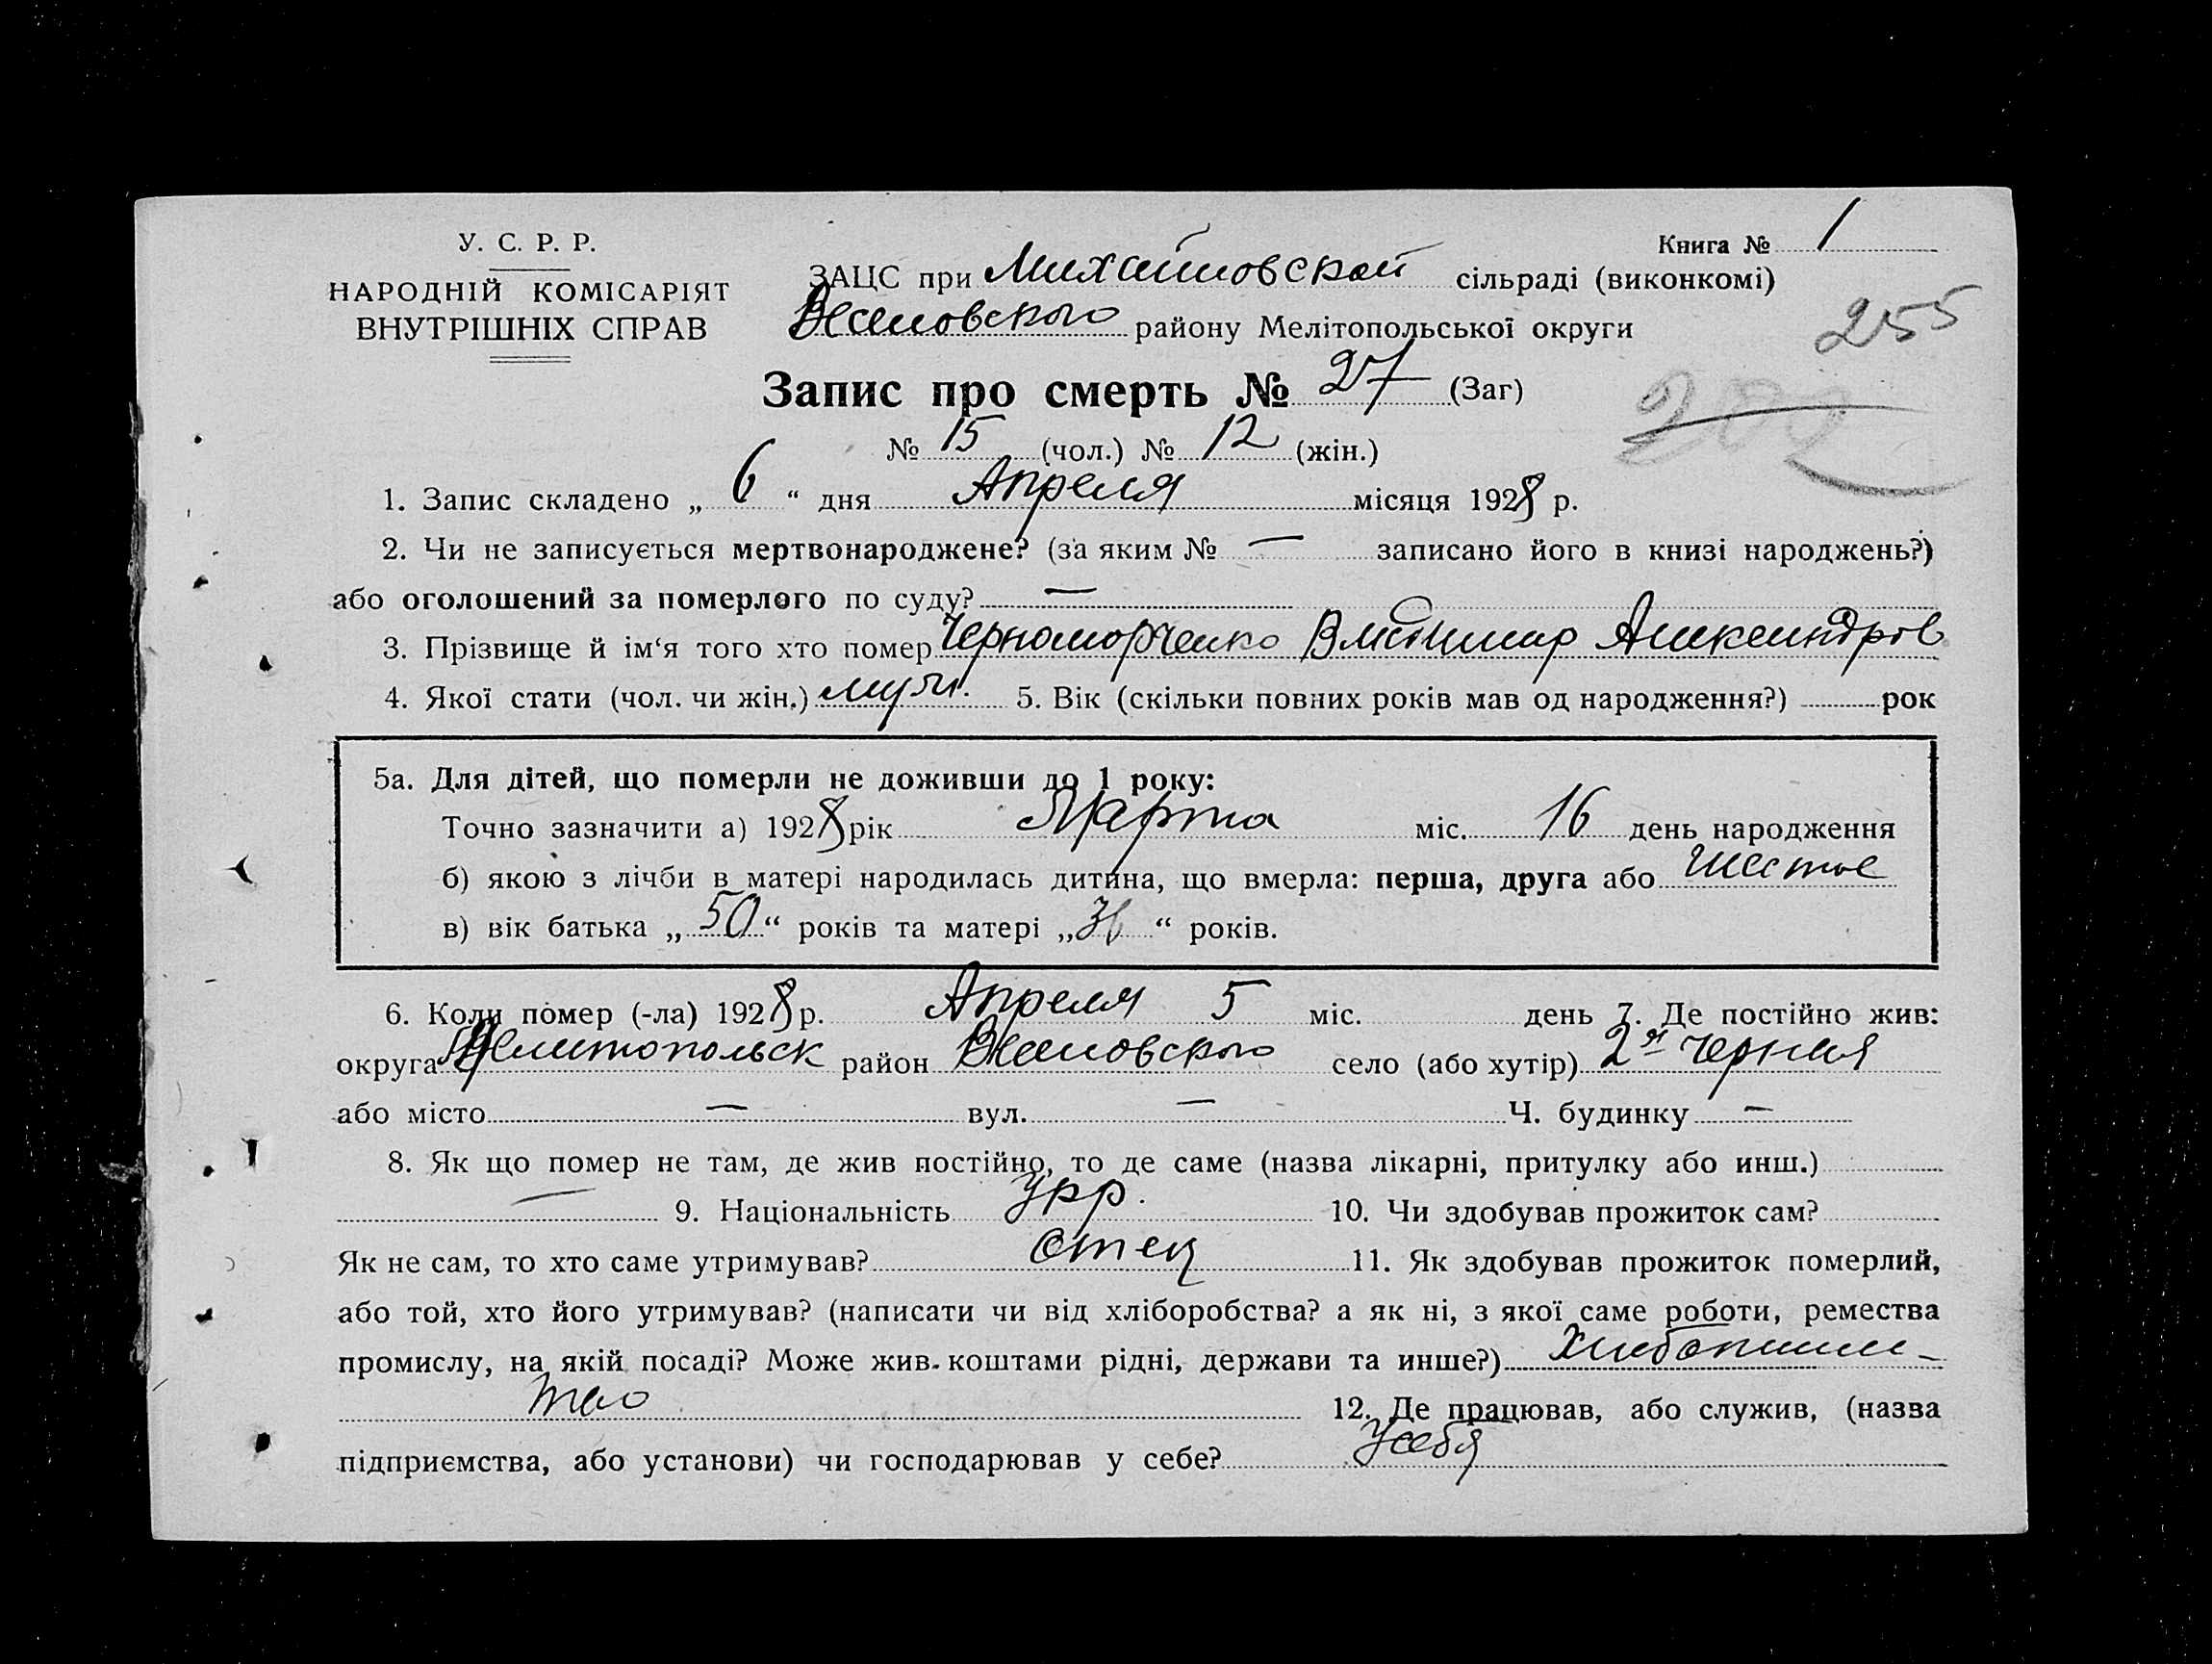 У. С. Р. Р.
НАРОДНІЙ КОМІСАРІЯТ
ВНУТРІШНІХ СПРАВ
Книга № 1
ЗАЦС при Михайловской сільраді (виконкомі)
Веселовского району Мелітопольської округи
255
202
Запис про смерть № 27 (Заг)
№ 15 (чол.) № 12 (жін.)
1. Запис складено „ 6 “ дня Апреля місяця 1928 р.
2. Чи не записується мертвонароджене? (за яким № — записано його в книзі народжень?)
або оголошений за померлого по суду? —
3. Прізвище й ім‘я того хто помер Черноморченко Владимир Александров
4. Якої стати (чол. чи жін.) муж. 5. Вік (скільки повних років мав од народження?) рок
5а. Для дітей, що померли не доживши до 1 року:
Точно зазначити а) 1928 рік Марта міс. 16 день народження
б) якою з лічби в матері народилась дитина, що вмерла: перша, друга або шестое
в) вік батька „ 50 “ років та матері „ “ років.
6. Коли помер (-ла) 1928 р. Апреля 5 міс. день 7. Де постійно жив:
округа Мелитопольск район Веселовского село (або хутір) 2я
або місто — вул. — Ч. будинку —
8. Як що помер не там, де жив постійно, то де саме (назва лікарні, притулку або инш.)
— 9. Національність Укр. 10. Чи здобував прожиток сам?
Як не сам, то хто саме утримував? Отец 11. Як здобував прожиток померлий,
або той, хто його утримував? (написати чи від хліборобства? а як ні, з якої саме роботи, ремества
промислу, на якій посаді? Може жив. коштами рідні, держави та инше?) Хлебопаше-
тво 12. Де працював, або служив, (назва
підприємства, або установи) чи господарював у себе? У себя